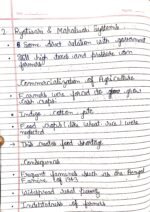 2. Ryotwari & Mahalwari Systems
• Some direct relation with government
• Still high taxes and problem with farmers
Commercialization of Agriculture
• Farmers were forced to grow cash crops
• Indigo cotton
• Food crops like wheat rice were neglected
• This created food shortage
Consequences
• Frequent famines such as the Bengal Famine of 1943
• Widespread rural poverty
• Indebtedness of farmers